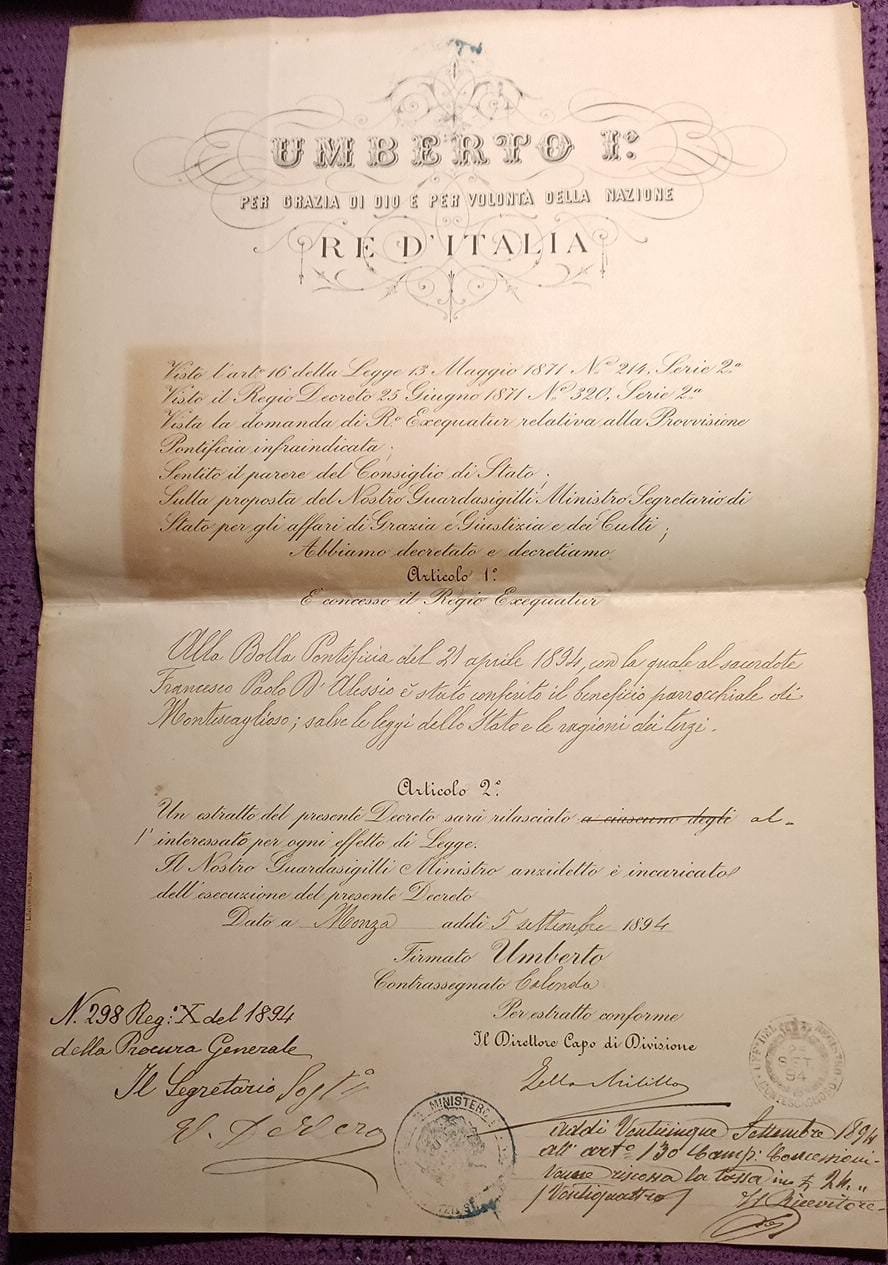 UMBERTO Iº
PER GRAZIA DI DIO E PER VOLONTÀ DELLA NAZIONE
RE D'ITALIA
Visto l'artº 16 della Legge 13 Maggio 1871 Nº 214, Serie 2ª
Visto il Regio Decreto 25 Giugno 1871 Nº 320, Serie 2ª
Vista la domanda di Rº Exequatur relativa alla Provvisione
Pontificia infraindicata;
Sentito il parere del Consiglio di Stato;
Sulla proposta del Nostro Guardasigilli Ministro Segretario di
Stato per gli affari di Grazia e Giustizia e dei Culti;
Abbiamo decretato e decretiamo
Articolo 1º
E' concesso il Regio Exequatur
Alla Bolla Pontificia del 21 aprile 1894, con la quale al sacerdote
Francesco Paolo D'Alessio è stato conferito il beneficio parrocchiale di
Montescaglioso; salve le leggi dello Stato e le ragioni dei terzi.
Articolo 2º
Un estratto del presente Decreto sarà rilasciato a ciascuno degli al-
l'interessato per ogni effetto di Legge.
Il Nostro Guardasigilli Ministro anzidetto è incaricato
dell'esecuzione del presente Decreto
Dato a Monza addì 5 settembre 1894
Firmato Umberto
Contrassegnato Calenda
Per estratto conforme
Il Direttore Capo di Divisione
N. 298 Reg:º X del 1894
della Procura Generale
Il Segretario Sostº
UFF. DEL REGISTRO
SET
94
MONTESCAGLIOSO
MINISTERO
addì Venticinque Settembre 1894
all' artº 130 Camp: Concessioni
venne riscossa la tassa in £ 24. "
(Ventiquattro)
Il Ricevitore